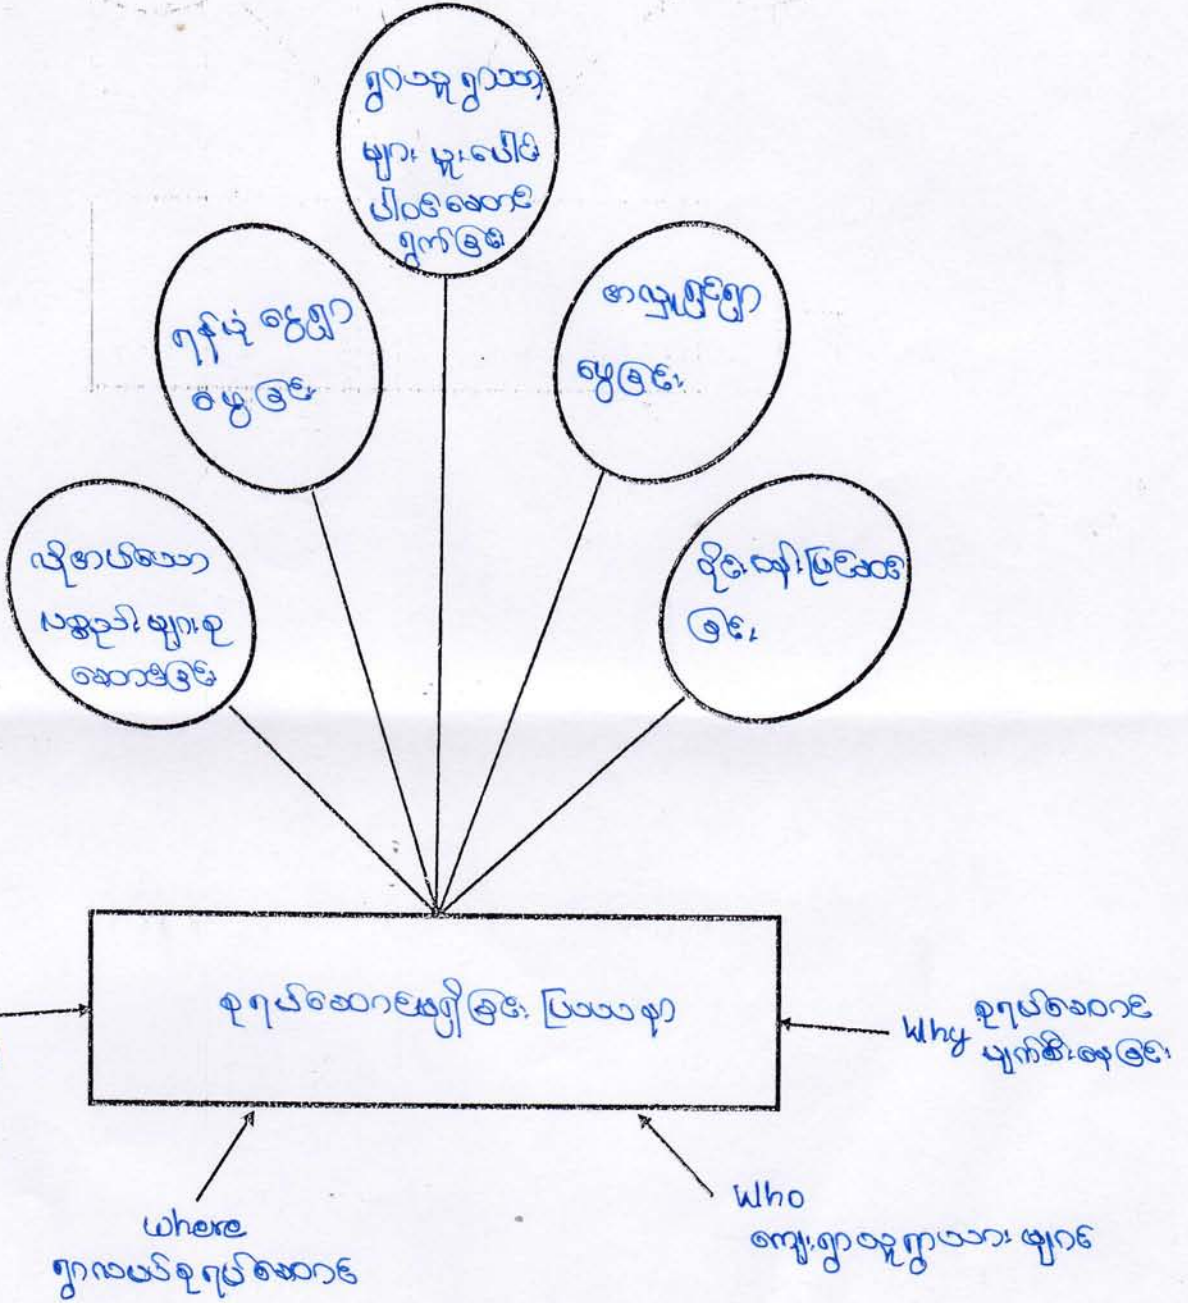 ရွာသူ ရွာသား
များ ပူးပေါင်း
ပါဝင်ဆောင်
ရွက်ခြင်း
ရန်ပုံ ငွေရှာ
ဖွေ ခြင်း
အလှူရှင်ရှာ
ဖွေခြင်း
လိုအပ်သော
ပစ္စည်း များ စု
ဆောင်းခြင်း
ဝိုင်း ဝန်း ပြင်ဆင်
ခြင်း
စုရပ်ဆောင်မရှိခြင်း ပြဿနာ
Why စုရပ်ဆောင်
ပျက်စီးနေခြင်း
where
ရွာလယ်စုရပ်ဆောင်
Who
ကျေးရွာသူရွာသား များ